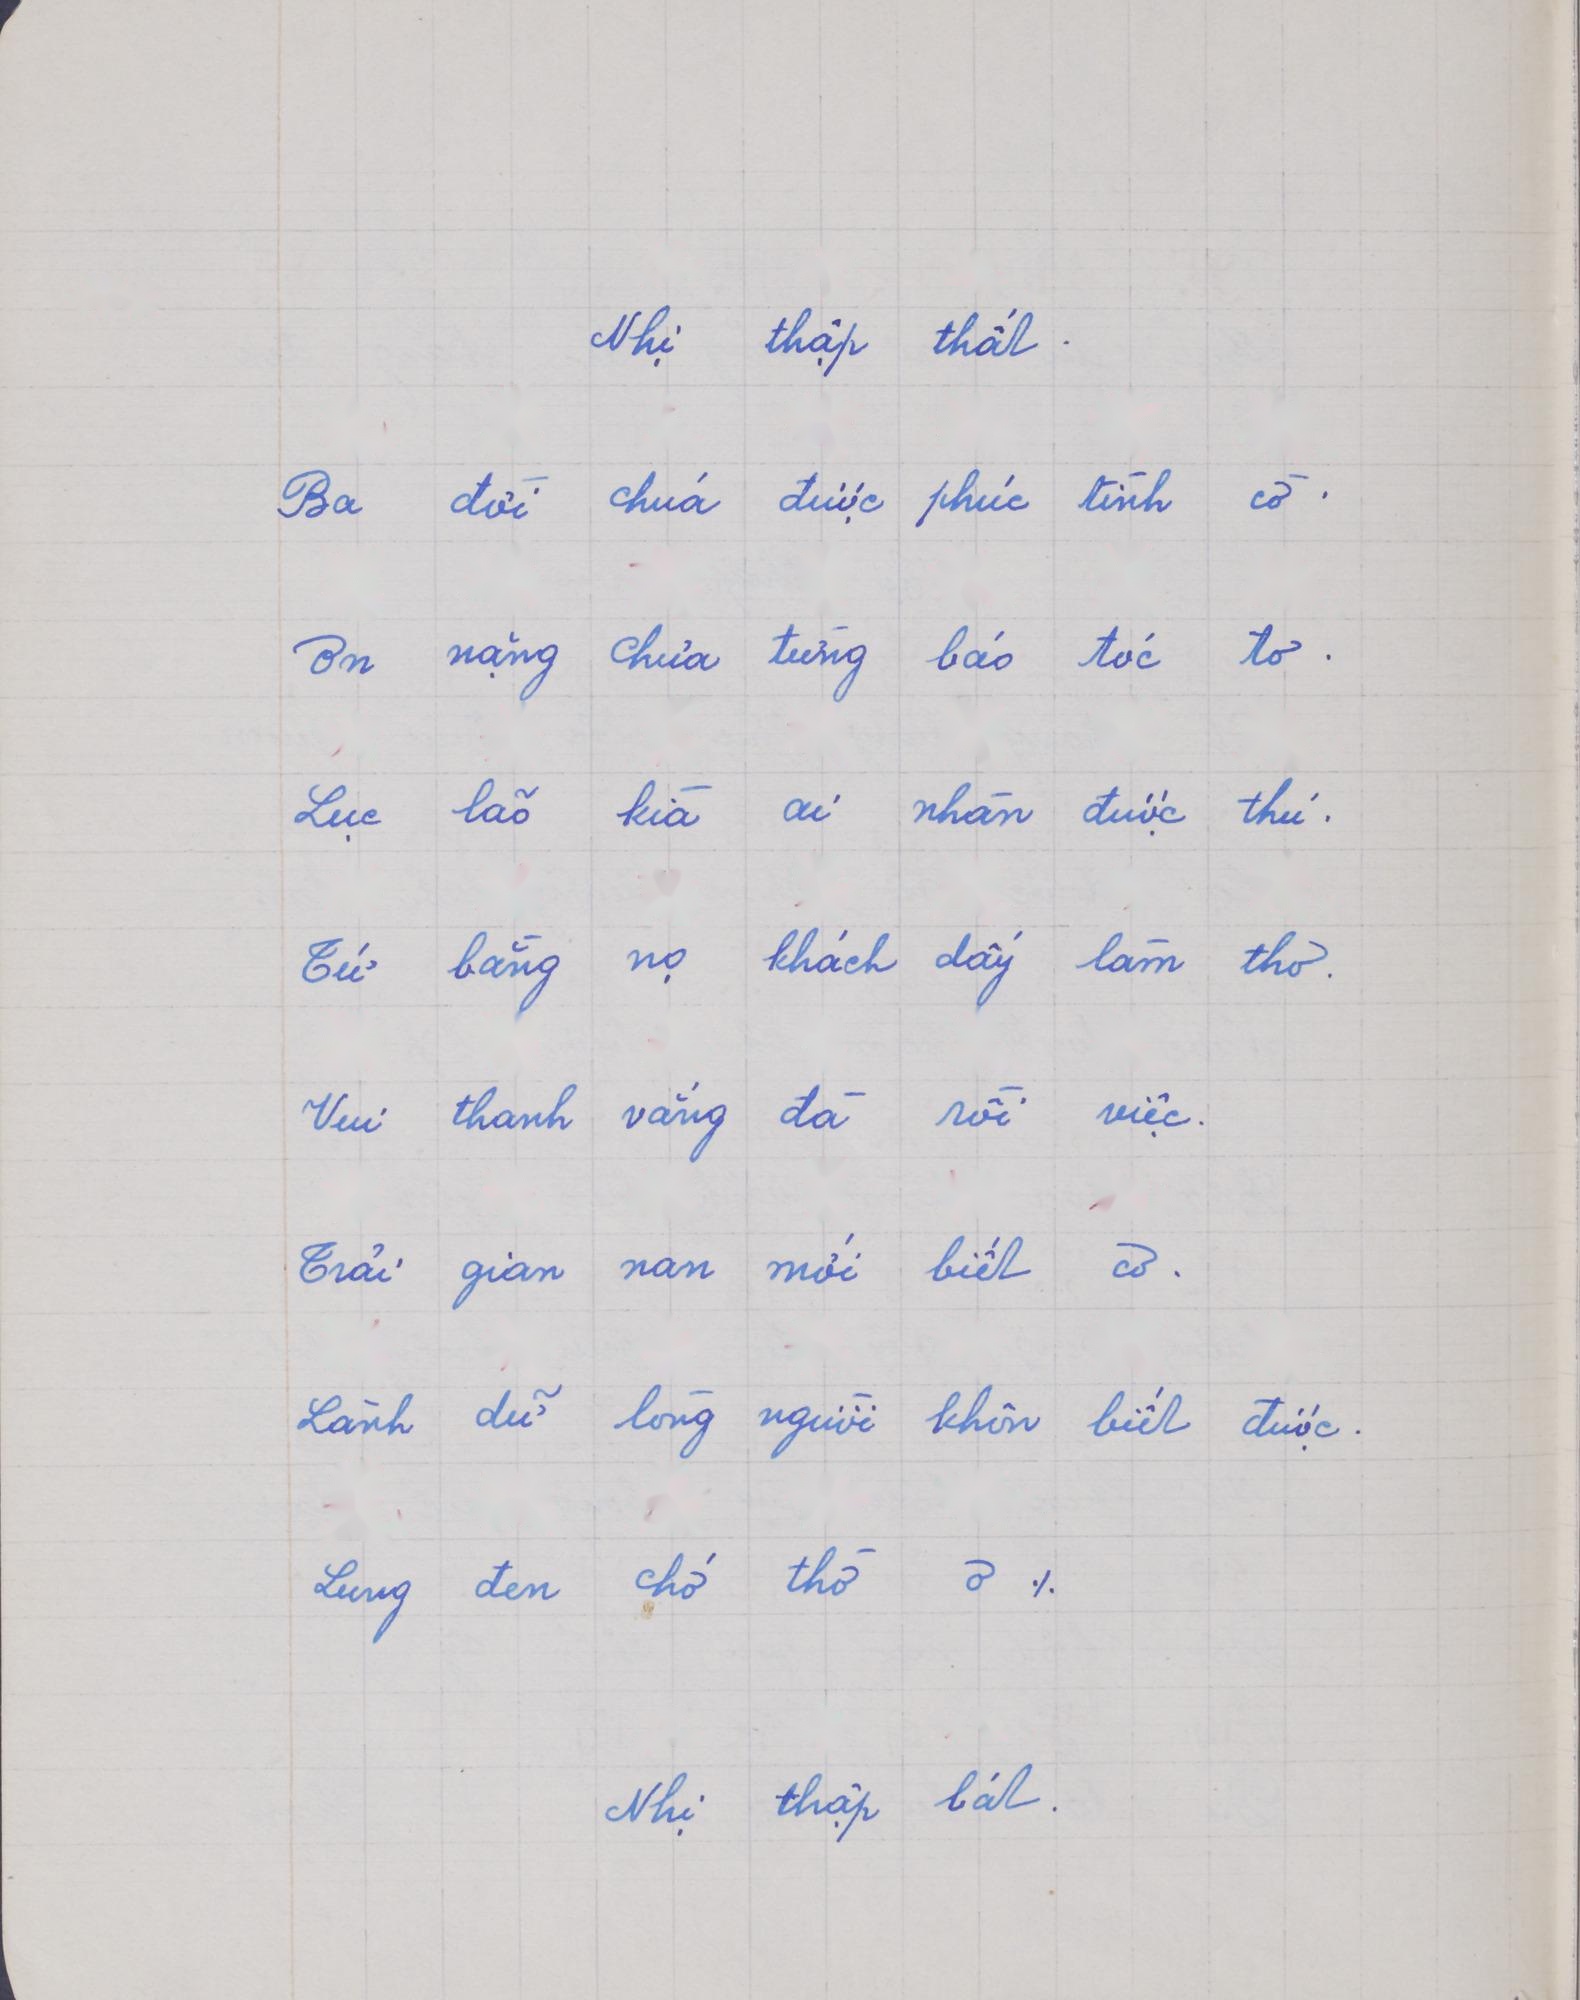 Nhị thập thất.
Ba đời chuá được phúc tình cờ.
Ơn nặng chửa từng báo tóc tơ.
Lục lão kià ai nhàn được thú.
Tứ bằng nọ khách dấy làm thơ.
Vui thanh vắng đà rồi việc.
Trải gian nan mới biết cơ.
Lành dữ lòng người khôn biết được.
Lưng đen chớ thờ ơ ./.
Nhị thập bát.